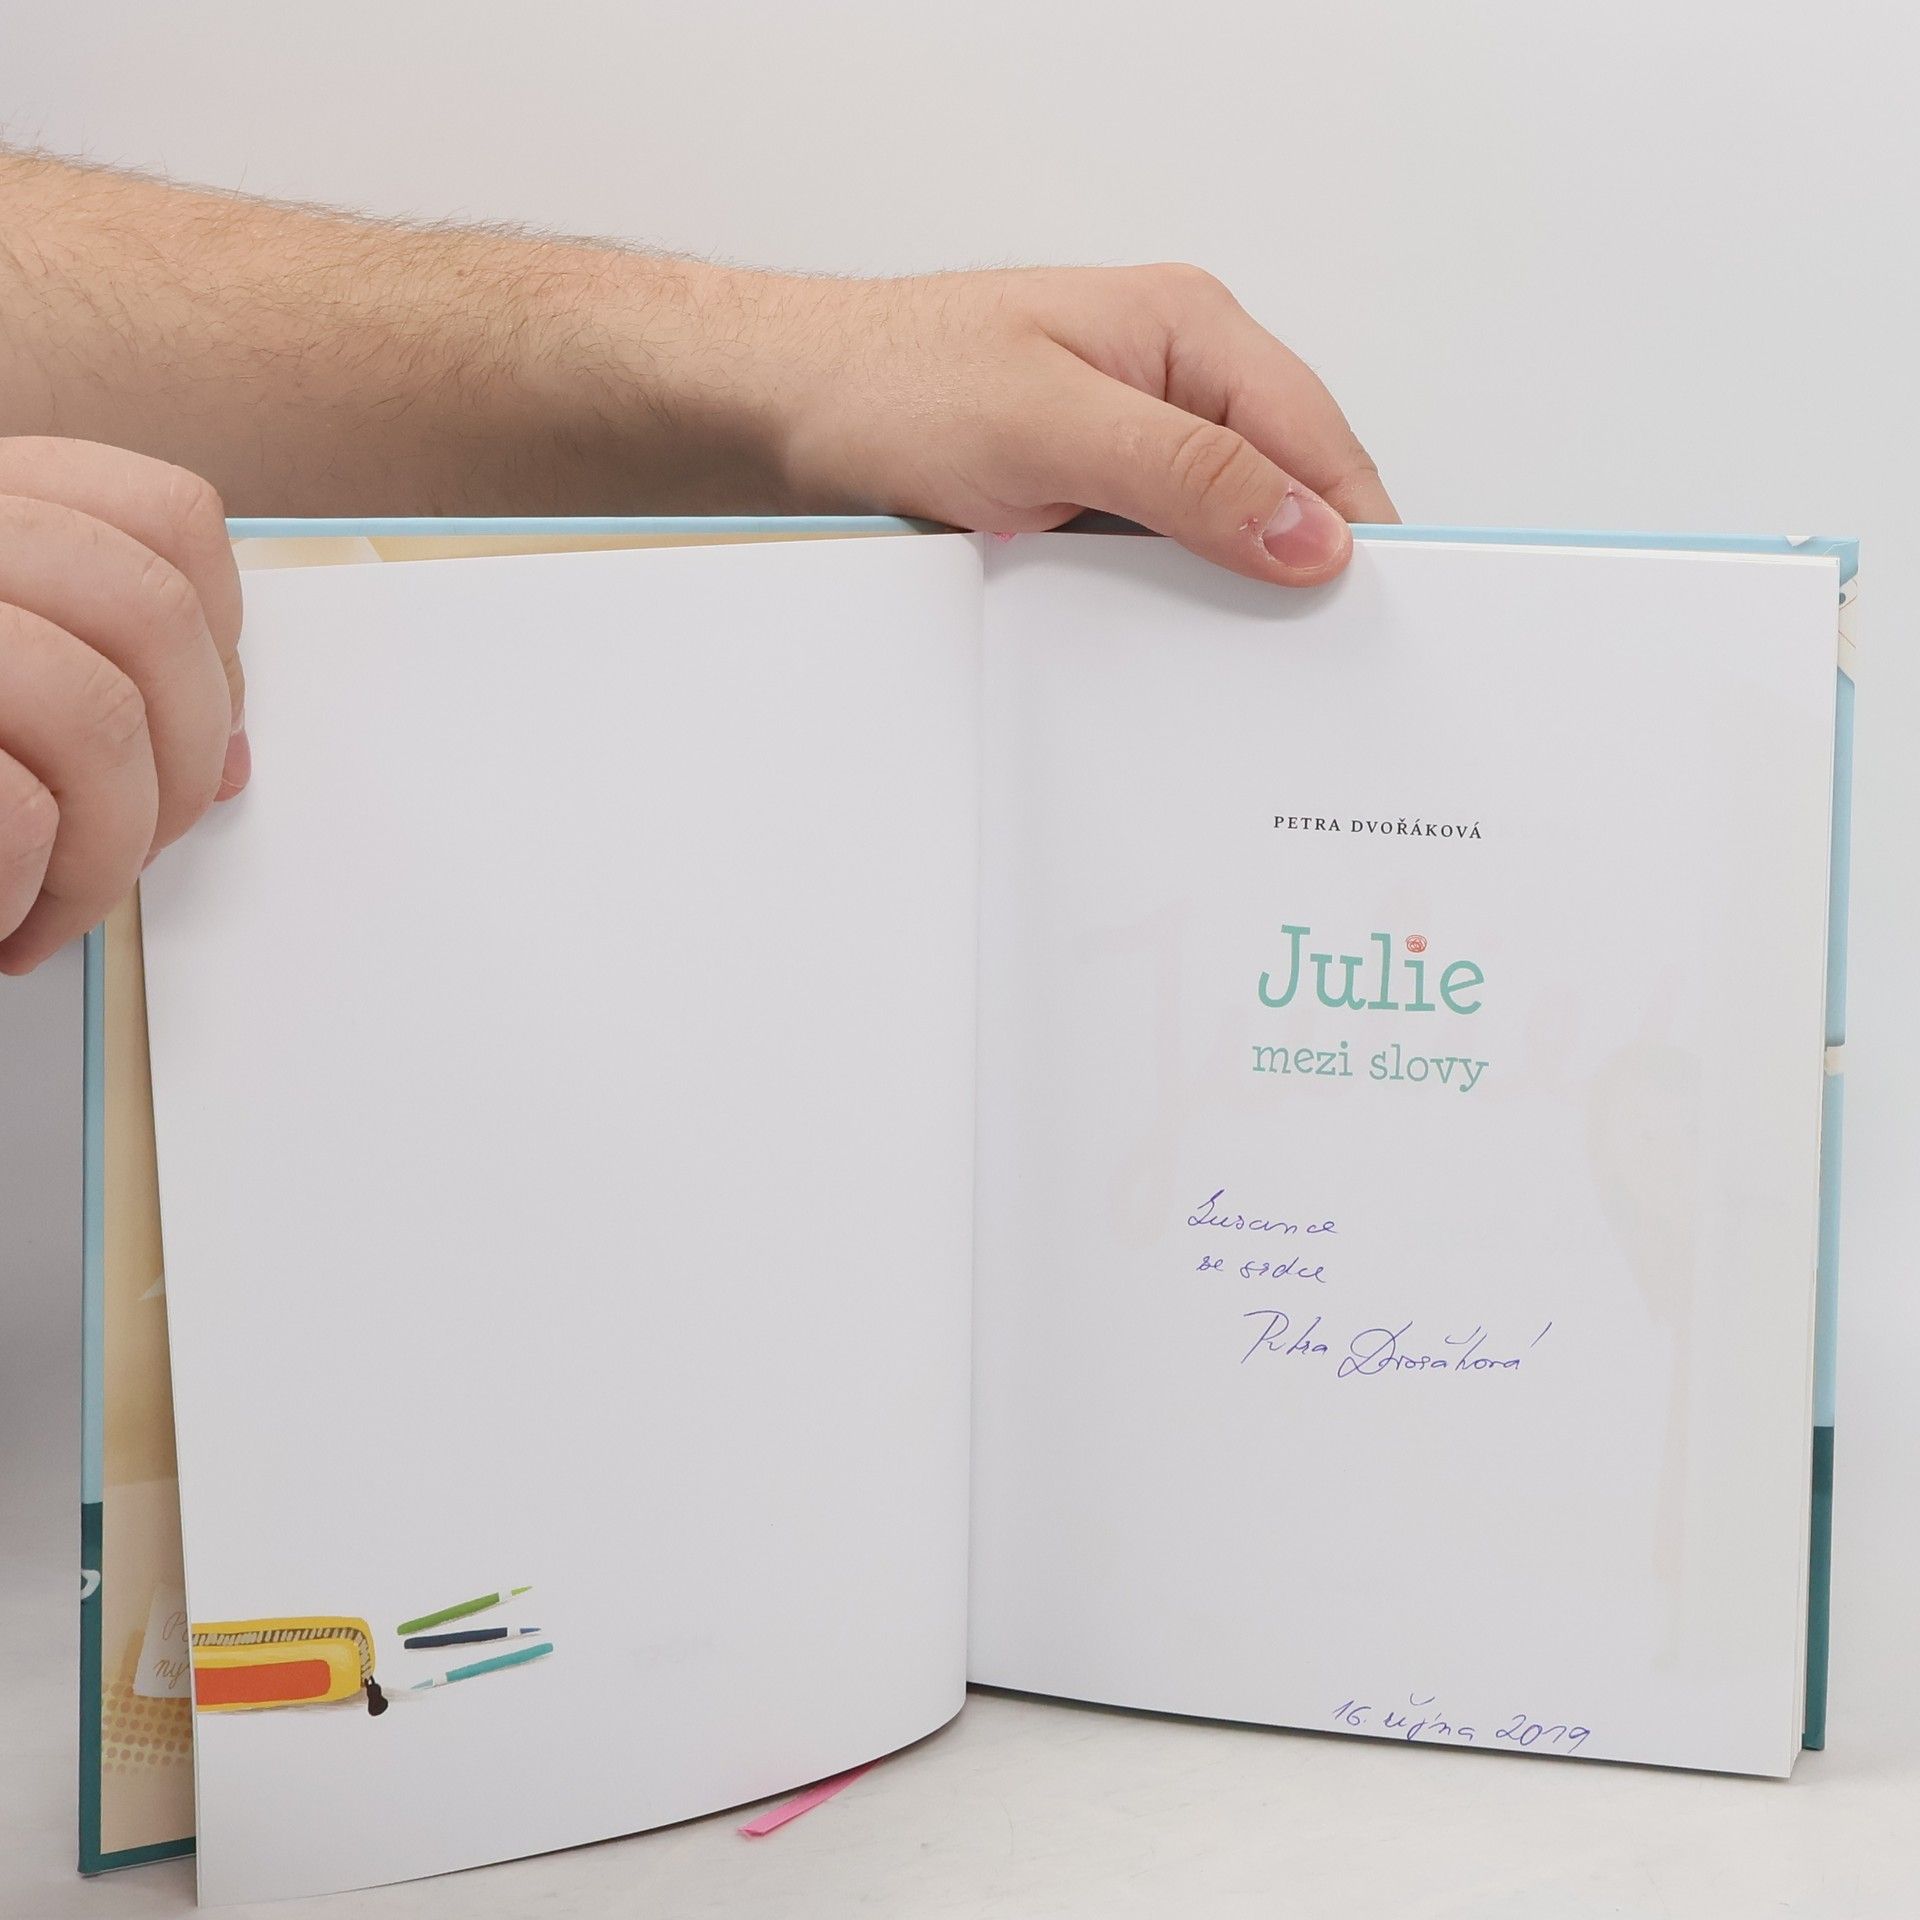 PETRA DVOŘÁKOVÁ
Julie
mezi slovy
Zusance
ze srdce
Petra Dvořáková
16. října 2019